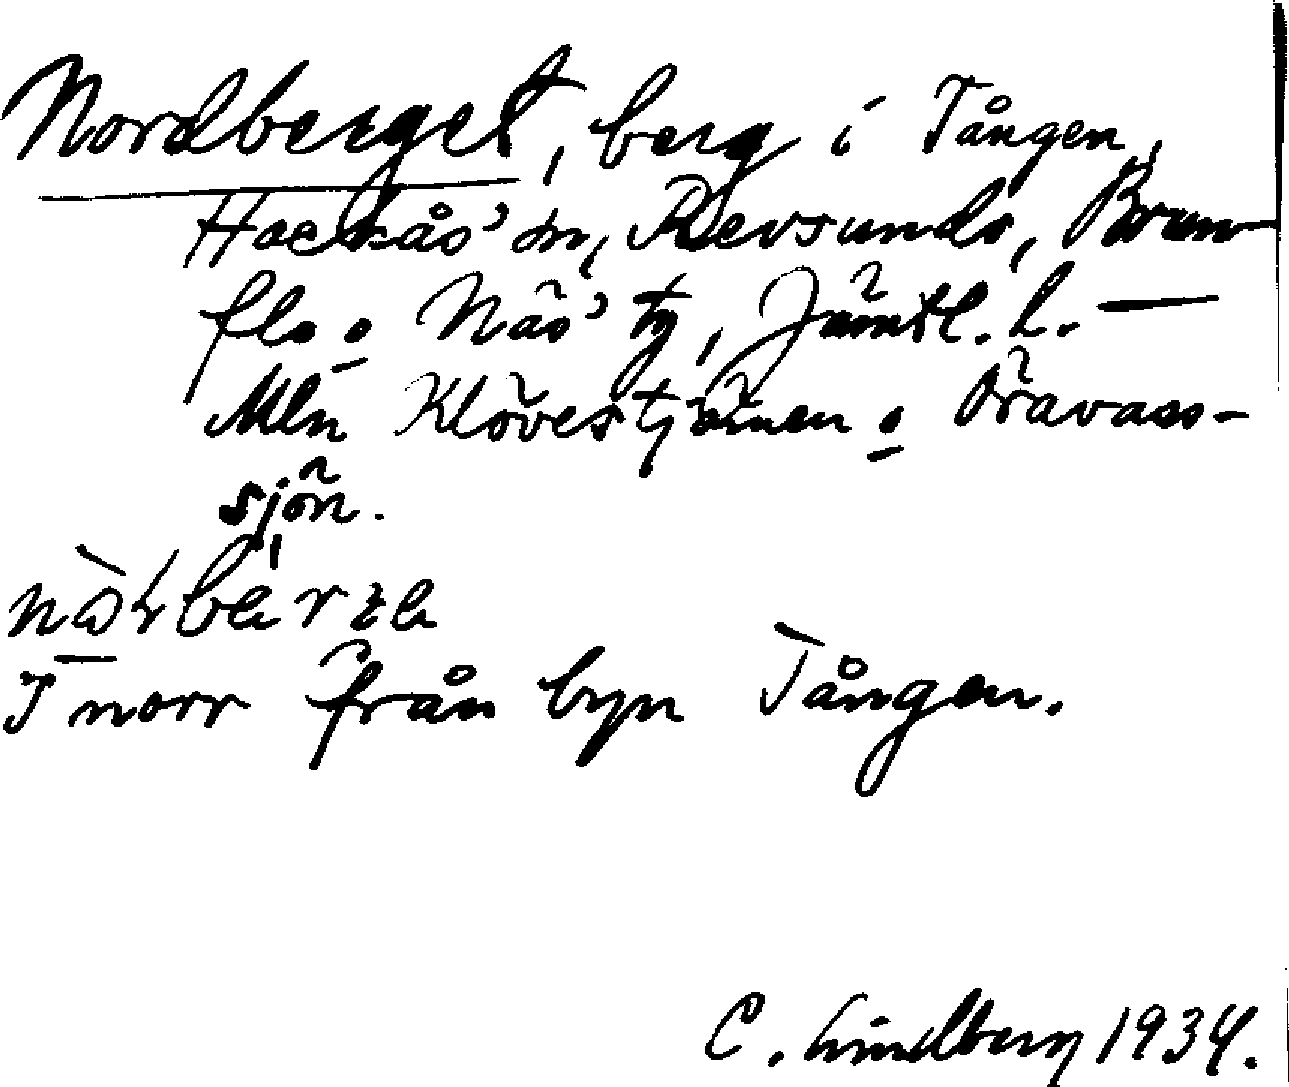 Nordberget, berg i Tången,
Hackås' sn, Revsunds, Brun-
flo o Näs' tg, Jämtl. l. —
Mln Klövestjärnen o Öravass-
sjön.
I norr från byn Tången.
C. Lindberg 1934.